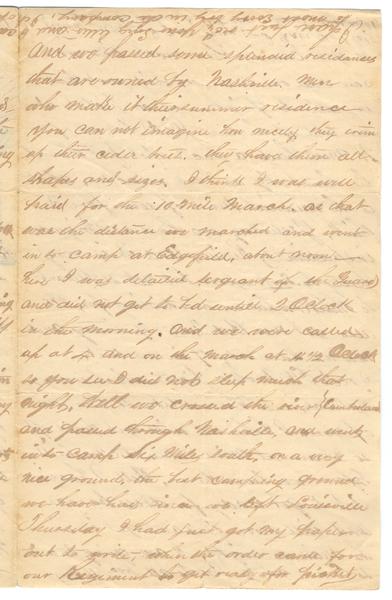 And we passed some splendid residences
that are owned by Nashville Men
who make it their summer residence
You can not imagine how nicely they trim
up their cider trees. they have them all
shapes and sizes. I think I was well
paid for the 10 Mile March. as that
was the distance we marched and went
in to camp at Edgefield, about noon
here I was detailed sergeant of the Guard
and did not get to bd untill 2 OClock
in the morning. And we were called
up at 4 and on the march at 4 1/2 OClock
so you see I did not sleep much that
night. Well we crossed the river (Cumberland
and passed through Nashville, and went
into camp Six Miles south, on a very
nice ground, the best camping ground
we have had since we left Louisville
Thursday I had just got my paper
out to write when the order came for
our Regiment to get ready for picket